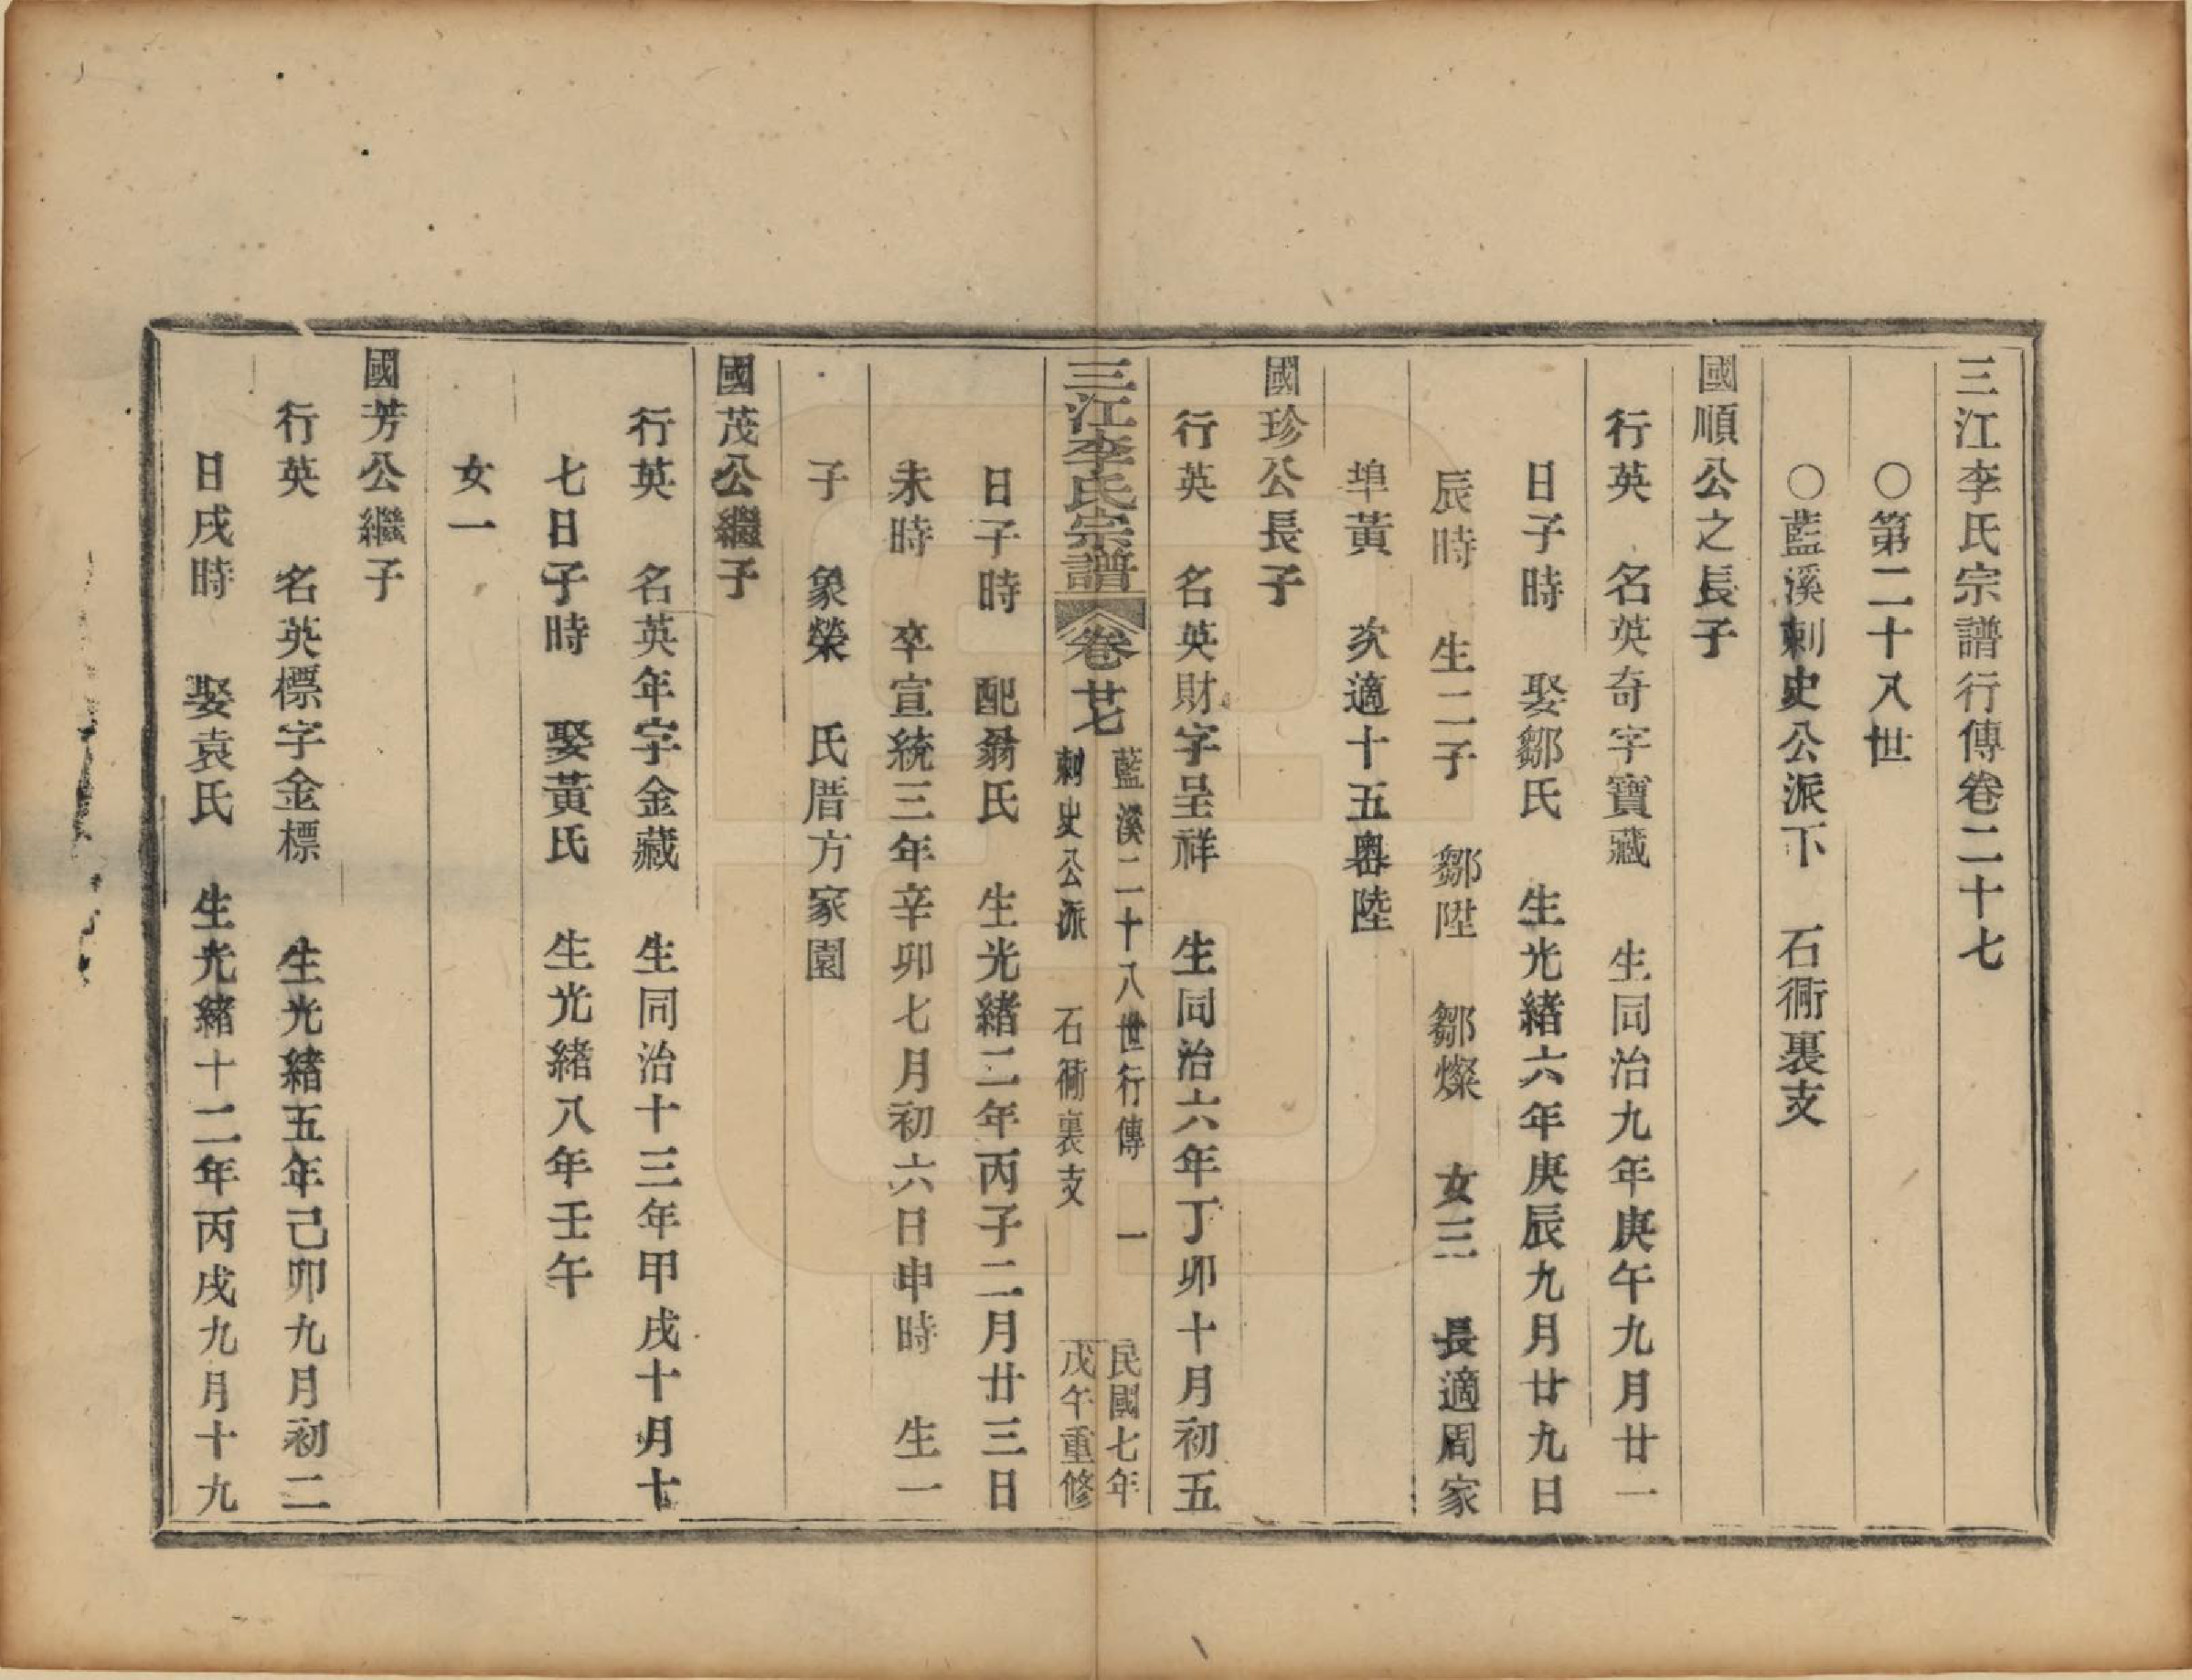 三江李氏宗譜行傳卷二十七
○第二十八世
○藍溪刺史公派下　石衕裏支
國順公之長子
行英　名英奇字寶藏　生同治九年庚午九月廿一
日子時　娶鄒氏　生光緒六年庚辰九月廿九日
辰時　生二子　鄒陞　鄒燦　女三　長適周家
埠黃　次適十五嶴陸
國珍公長子
行英　名英財字呈祥　生同治六年丁卯十月初五
三江李氏宗譜　卷廿七　藍溪二十八世行傳　一　民國七年
刺史公派　石衕裏支　戊午重修
日子時　配翁氏　生光緒二年丙子二月廿三日
未時　卒宣統三年辛卯七月初六日申時　生一
子　象榮　氏厝方家園
國茂公繼子
行英　名英年字金藏　生同治十三年甲戌十月十
七日子時　娶黃氏　生光緒八年壬午
女一
國芳公繼子
行英　名英標字金標　生光緒五年己卯九月初二
日戌時　娶袁氏　生光緒十二年丙戌九月十九